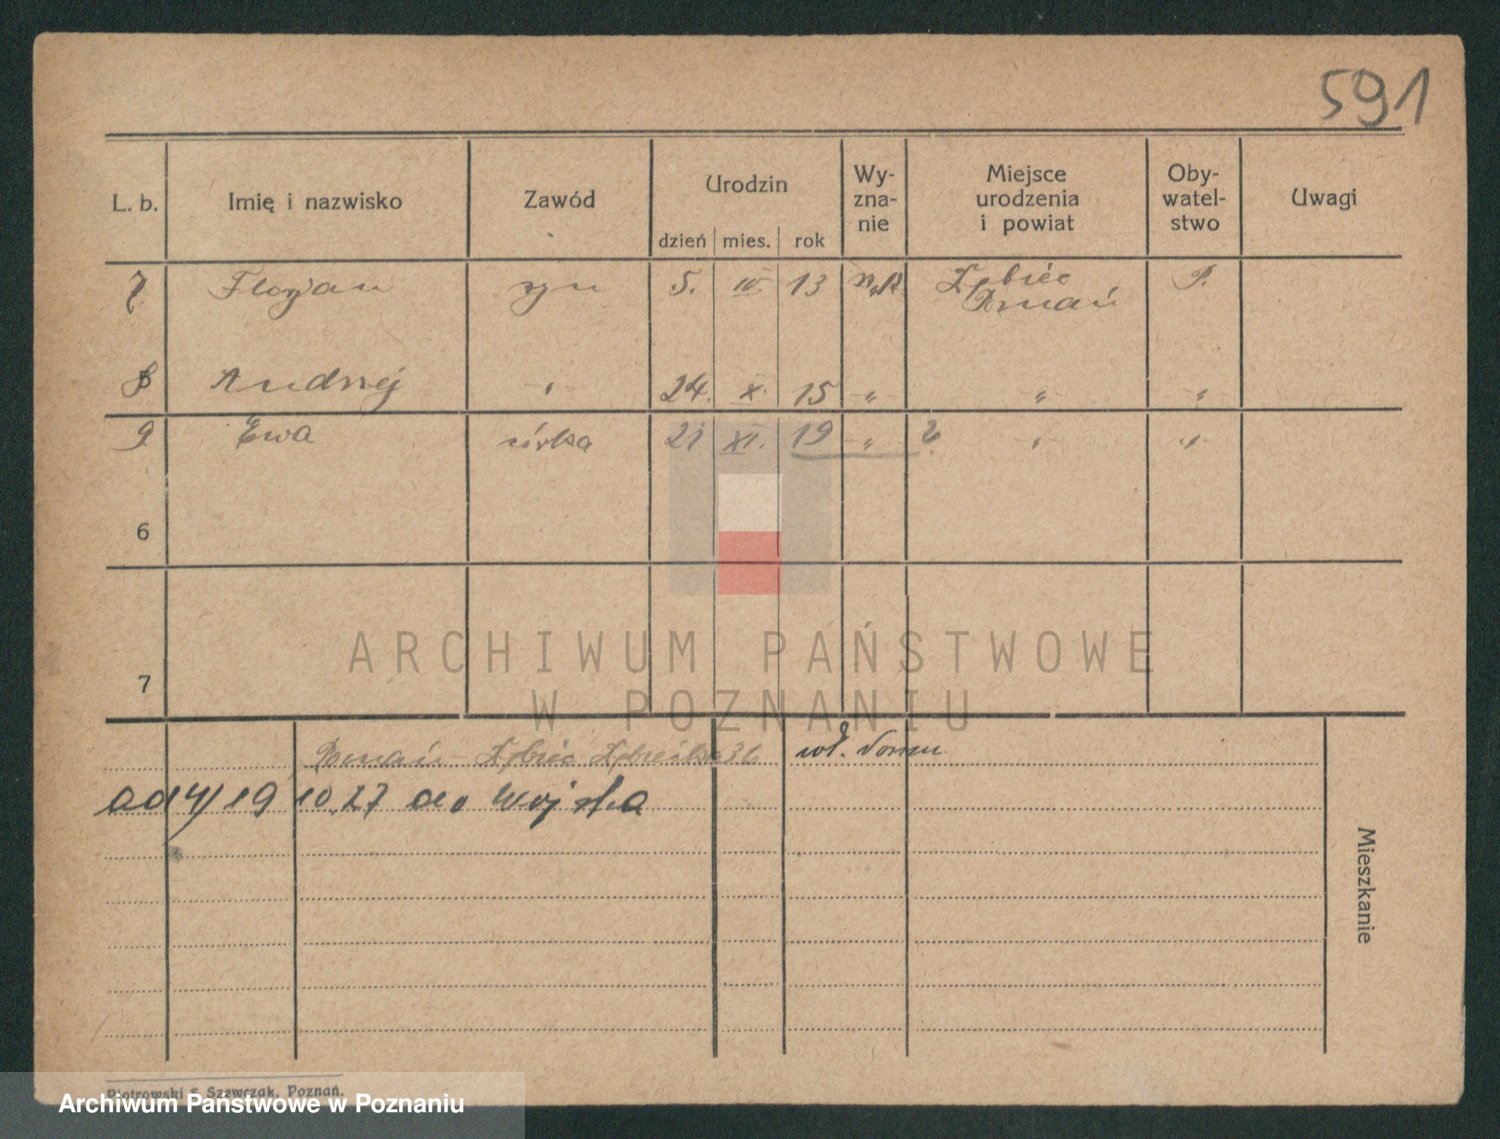 591
L. b. Imię i nazwisko Zawód Urodzin dzień mies. rok Wy-zna-nie Miejsce urodzenia i powiat Oby-watel-stwo Uwagi
7 Florjan syn 5. IV 13 Dębiec P.
Poznań
8 Andrzej " 24. X. 15 " " "
9 Ewa córka 21 XI. 19 " 2 " "
6
7
ARCHIWUM PAŃSTWOWE
W POZNANIU
Poznań Dębiec 36 wł. domu
19 10.27 do wojska
Mieszkanie
Piotrowski & Szewczak, Poznań.
Archiwum Państwowe w Poznaniu